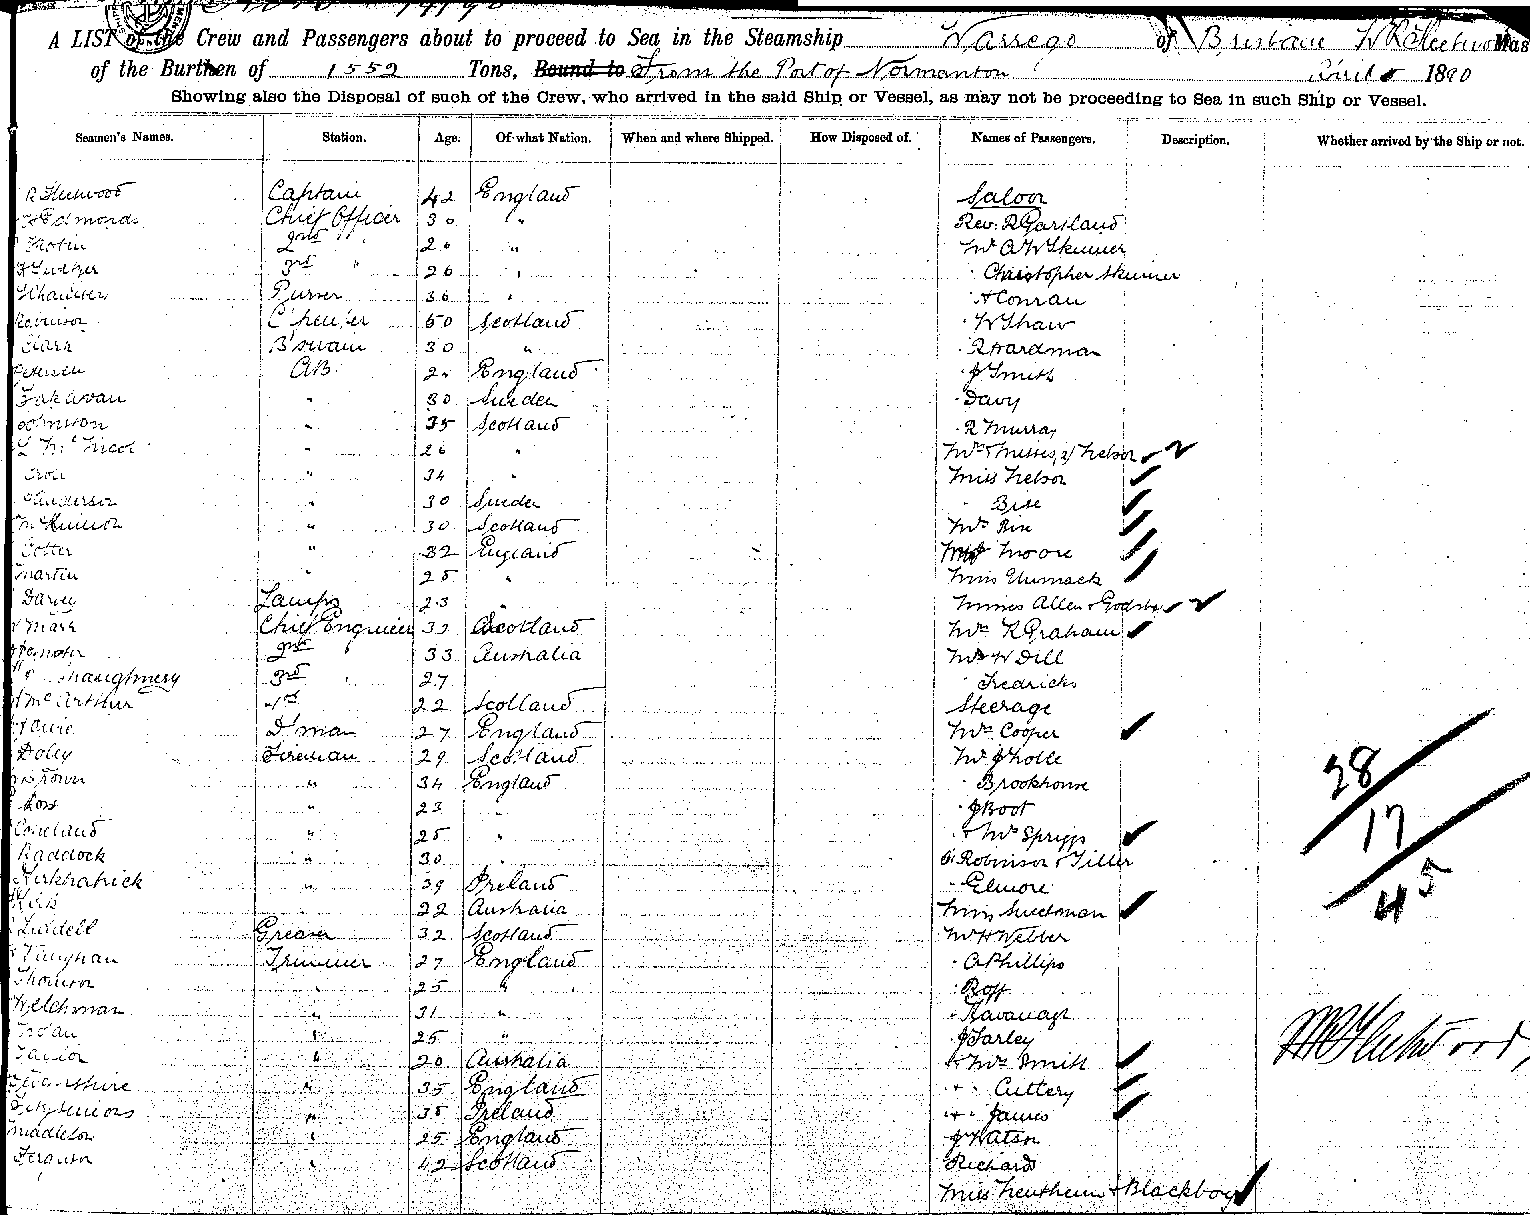 A LIST of the Crew and Passengers about to proceed to Sea in the Steamship Warrego of Brisbane W R Fleetwood Mas
of the Burthen of 1552 Tons, Bound to From the Port of Normanton 1890
Showing also the Disposal of such of the Crew, who arrived in the said Ship or Vessel, as may not be proceeding to Sea in such Ship or Vessel.
Seamen's Names. Station. Age. Of what Nation. When and where Shipped. How Disposed of. Names of Passengers. Description. Whether arrived by the Ship or not.
R Fleetwood Captain 42 England Saloon
Edmonds Chief Officer 30 " Rev. R Gartland
2nd " " Mr A W Skinner
3rd " 26 " " Christopher Skinner
Chambers Purser 36 " " Conran
Robinson 50 Scotland " W Shaw
Clark B'swain 30 " " R Hardman
Petersen AB England " J Smith
" 30 Sweden " Davy
Johnston " 35 Scotland " R Murray
McNicol " 26 " Nelson 2
" 34 " Miss Nelson
Henderson " 30 Sweden "
McKinnon " 30 Scotland Mrs
Cotter " 32 England Moore
Martin " 25 " Miss
Darvey Lamps 23 " Misses Allen & 2
Mark Chief Engineer 32 Scotland Mrs R Graham
2nd " 33 Australia Mr W Dill
Shaughnessy 3rd " 27 " Fredericks
McArthur 4th 22 Scotland Steerage
D'man 27 England Mrs Cooper
Doley Fireman 29 Scotland Mr J
Brown " 34 England " Brookhouse
Ross " 23 " " J Boot
Copeland " 25 " + Mrs Spriggs
Raddock " 30 " Robinson & Tiller
Kirkpatrick " 39 Ireland " Elmore
Kirk " 22 Australia Miss
Liddell Greaser 32 Scotland Mr H Webber
Vaughan Trimmer 27 England " A Phillips
Thomson " 25 " "
Welchman " 31 " " Kavanagh
" 25 " J Farley
Taylor " 20 Australia + Mrs Smith
" 35 England + " Cuttery
Fitzsimons " 35 Ireland + " James
Middleton " 25 England J Watson
Ferguson " 42 Scotland Richards
Miss & Blackboy
28
17
45
W R Fleetwood,